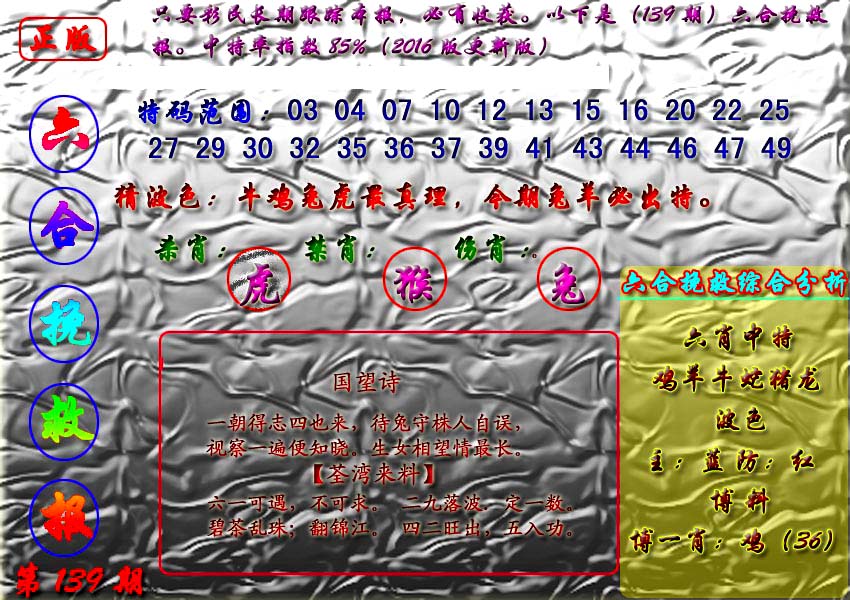 正版
只要彩民长期跟踪本报，必有收获。以下是（139期）六合挽救
报。中特率指数85%（2016版更新版）
六
合
挽
救
报
第139期
特码范围：03 04 07 10 12 13 15 16 20 22 25
27 29 30 32 35 36 37 39 41 43 44 46 47 49
猜波色：牛鸡兔虎最真理，今期兔羊必出特。
杀肖：虎 禁肖：猴 伤肖：兔
国望诗
一朝得志四也来，待兔守株人自误，
视察一遍便知晓。生女相望情最长。
【荃湾来料】
六一可遇，不可求。二九落波．定一数。
碧茶乱珠；翻锦江。四二旺出，五入功。
六合挽救综合分析
六肖中特
鸡羊牛蛇猪龙
波色
主：蓝防：红
博料
博一肖：鸡（36）